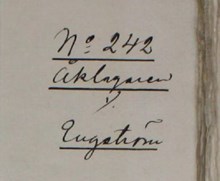 Nº 242
Åklagaren
y.
Engström